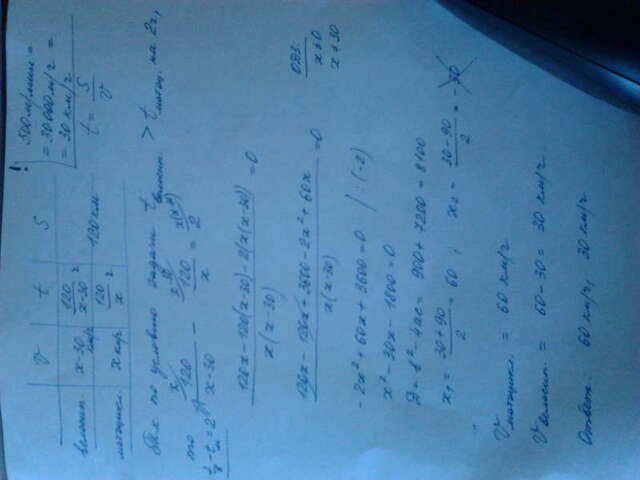 V t S
велосип. x-30 км/ч 120/(x-30) ч 120 км
мотоцикл. x км/ч 120/x ч
! 500 м/мин =
= 30 000 м/ч =
= 30 км/ч
t = S/V
t велосип. > t мотоц. на 2 ч,
по условию задачи
то
120/(x-30) - 120/x = 2
ОДЗ:
x≠0
x≠30
(120x-120(x-30)-2(x(x-30)))/(x(x-30)) =0
(120x-120x+3600-2x²+60x)/(x(x-30)) =0
-2x²+60x+3600=0 /:(-2)
x²-30x-1800=0
D=b²-4ac= 900+7200=8100
x₁= (30+90)/2 = 60; x₂= (30-90)/2 = -30
V мотоцикл. = 60 км/ч
V велосип. = 60-30= 30 км/ч
Ответ: 60 км/ч, 30 км/ч